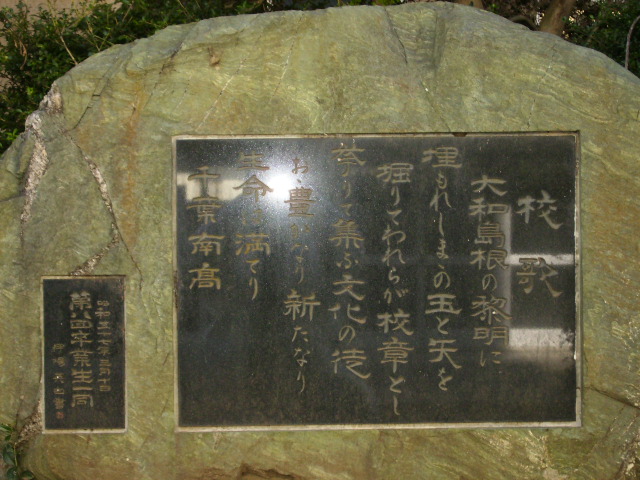 校歌
大和島根の黎明に
埋もれしまゝの玉と矢を
掘りてわれらが校章とし
挙りて集ふ文化の徒
豊かなり 新たなり
生命は満てり
千葉南高
昭和五十七年三月十日
第八回卒業生一同